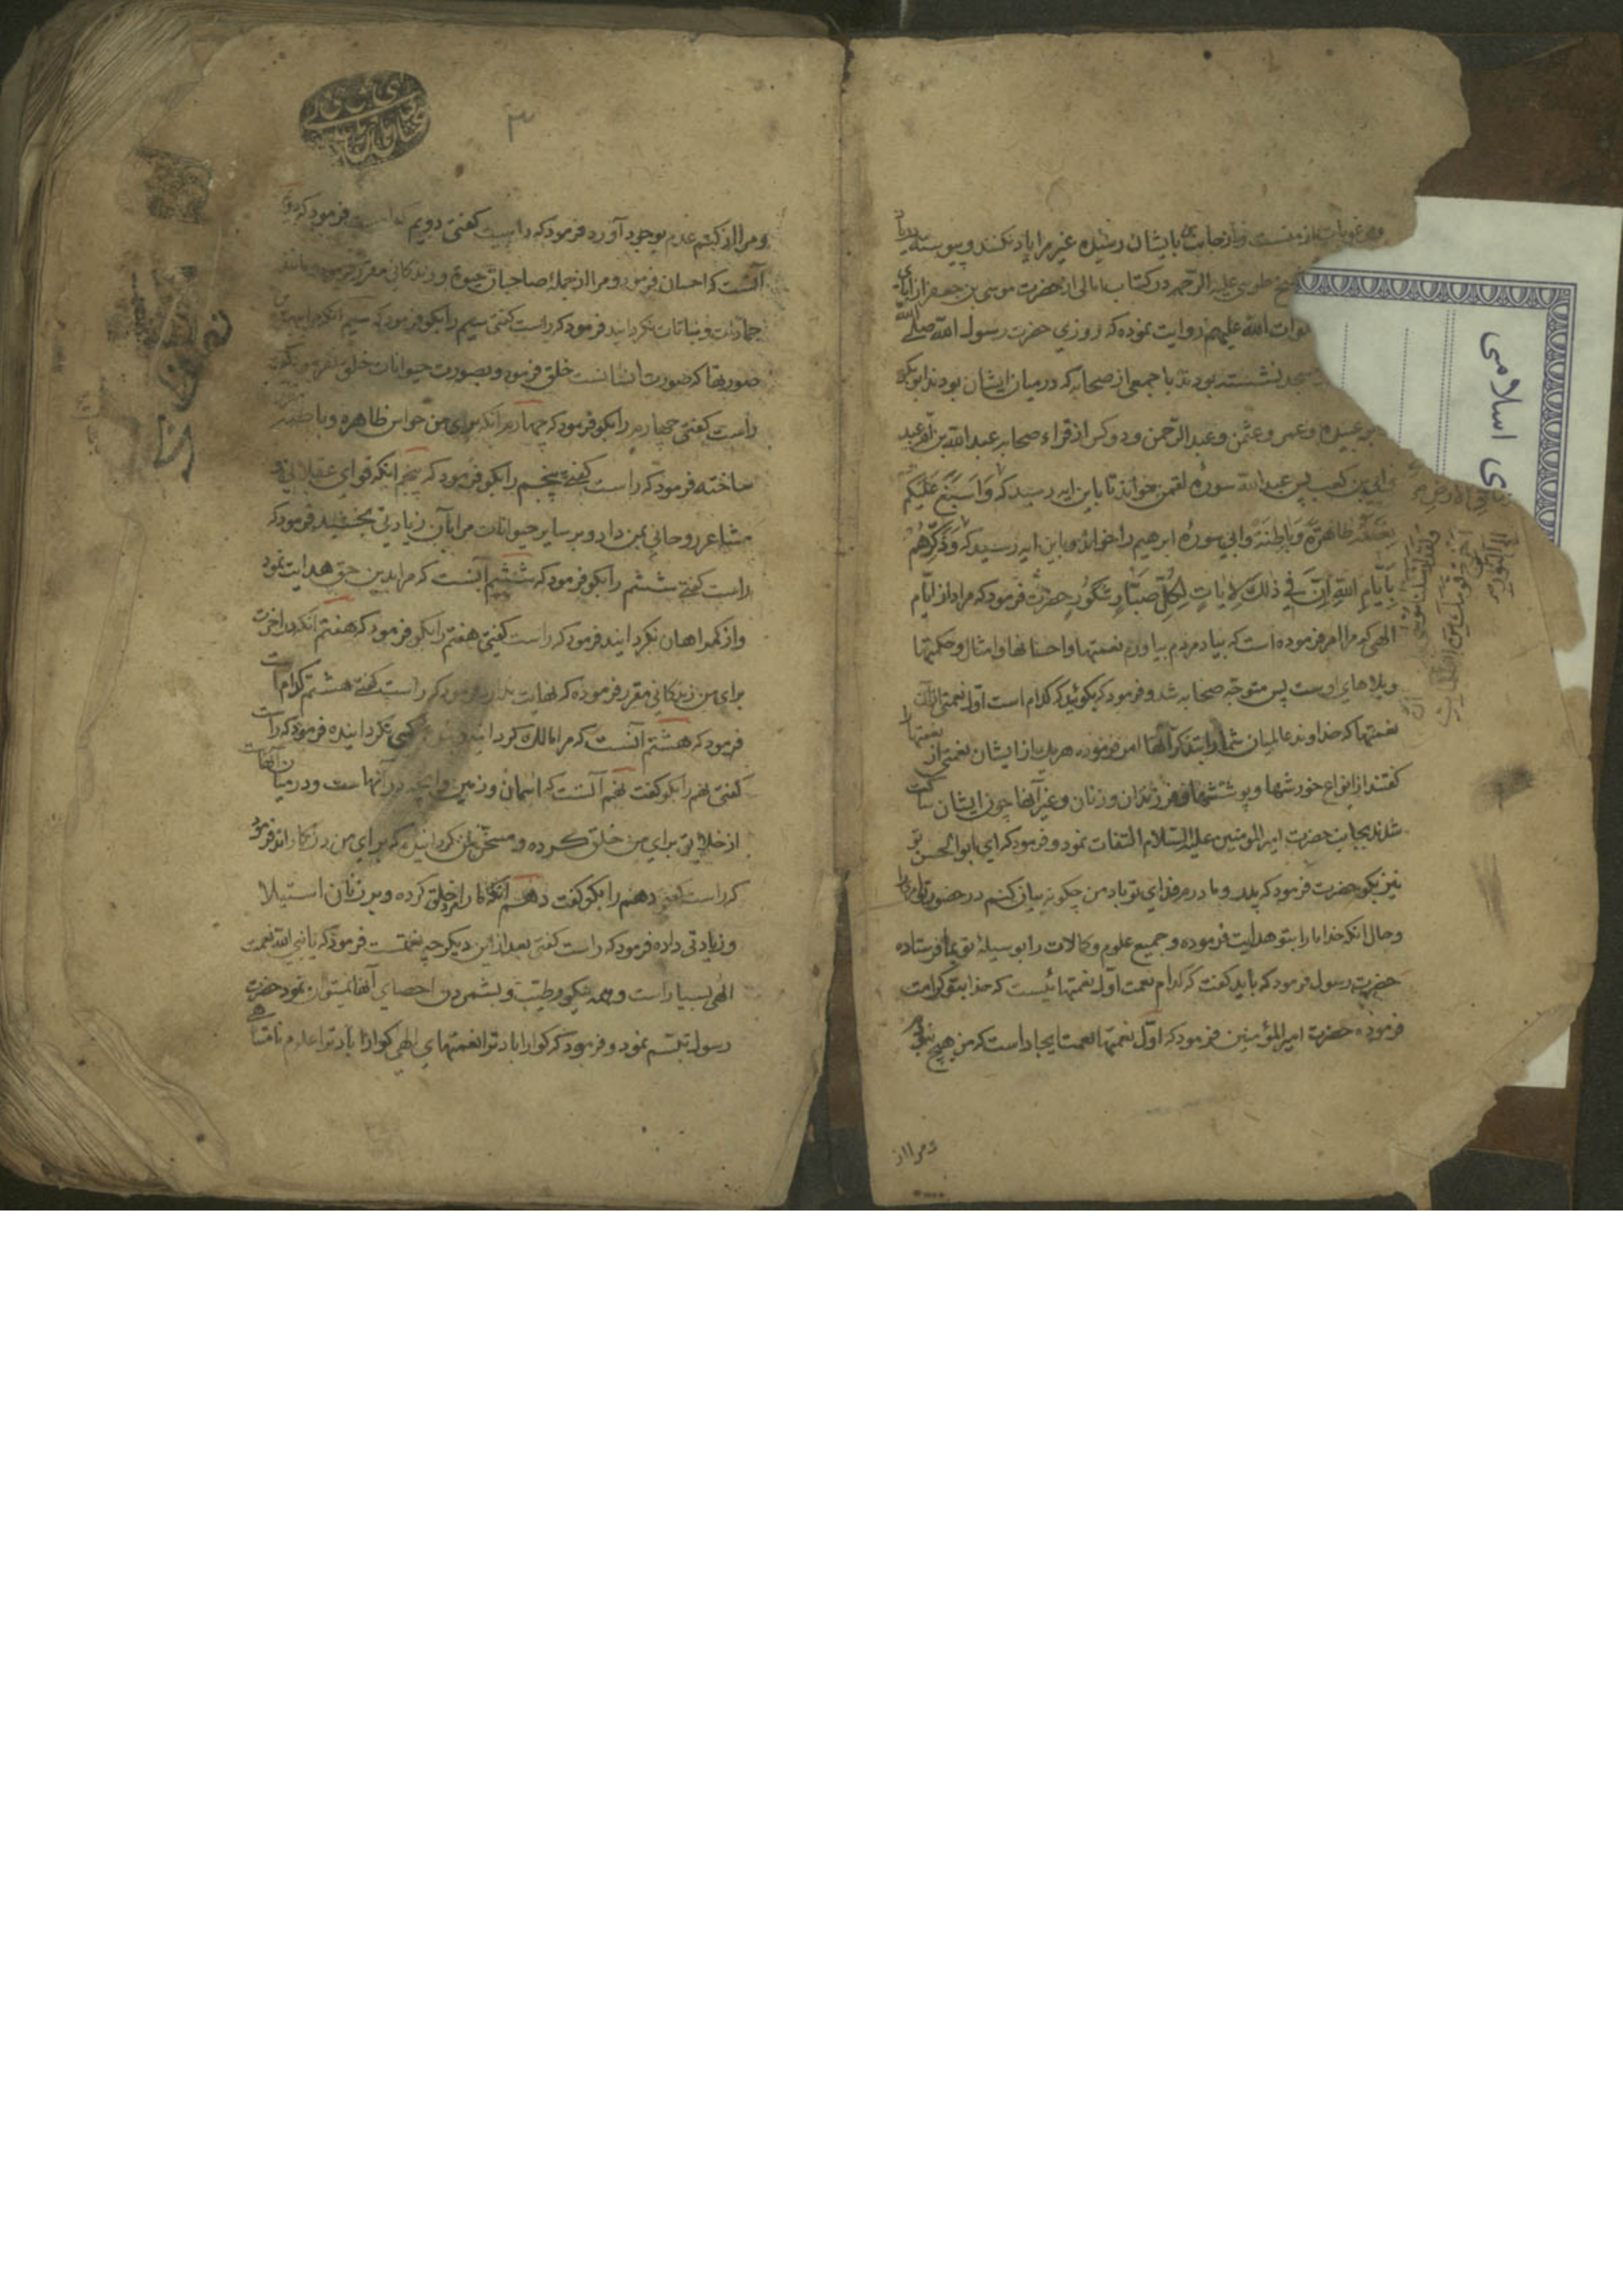 و مرغوبات از منست و از جانب من بایشان رسیده غیر مرا یاد نکنند و پیوسته
شیخ طوسی علیه الرحمه در کتاب امالی از حضرت موسی بن جعفر از آبای
صلوات الله علیهم روایت نموده که روزی حضرت رسول الله صلی الله
مسجد نشسته بودند با جمعی از صحابه که در میان ایشان بودند ابوبکر
ابو عبیده و عمر و عثمن و عبد الرحمن و دو کس از قراء صحابه عبد الله بن ام عبد
و ابی بن کعب پس عبد الله سوره لقمن خواند تا باین ایه رسید که وَاَسْبَغَ عَلَیْکُم
نِعَمَهُ ظاهِرَةً وَ باطِنَةً و ابی سوره ابرهیم را خواند و باین ایه رسید که وَذَکِّرْهُم
بِاَیّامِ اللهِ اِنَّ فی ذلِکَ لَایاتٍ لِکُلِّ صَبّارٍ شَکُورٍ حضرت فرمود که مراد از ایّام
الهی که مرا امر فرموده است که بیاد مردم بیاورم نعمتها و احسانها و امثال و حکمتها
و بلاهای اوست پس متوجّه صحابه شد و فرمود که بکوئید که کدام است اوّل نعمتی از آن
نعمتها که خداوند عالمیان شما را بتذکر آنها امر فرموده هر یک از ایشان نعمتی از نعمتها را
کفتند از انواع خورشها و پوششها و فرزندان و زنان و غیر آنها چون ایشان ساکت
شدند بجانب حضرت امیر المومنین علیه السّلام التفات نمود و فرمود که ای ابو الحسن تو
نیز بکو حضرت فرمود که پدر و مادرم فدای تو باد من چکونه بیان کنم در حضور تو
و حال انکه خدا ما را بتو هدایت فرموده و جمیع علوم و کمالات را بوسیلهٔ تو بما فرستاده
حضرت رسول فرمود که باید کفت که کدام نعمت اوّل نعمتهائیست که خدا بتو کرامت
فرموده حضرت امیر المؤمنین فرمود که اوّل نعمتها نعمت ایجاد است که من هیچ نبودم
و مرا از
و مرا از کتم عدم بوجود آورد فرمود که راست کفتی دویم کدامست فرمود که دویم
آنست که احسان فرمود و مرا از جملهٔ صاحبان حیوة و زندکانی مقرر فرمود و مانند
جمادات و نباتات نکردانید فرمود که راست کفتی سیم را بکو فرمود که سیم آنکه مرا بهترین
صورتها که صورت انسانست خلق فرمود و بصورت حیوانات خلق نفرمود
راست کفتی چهارم را بکو فرمود که چهارم آنکه برای من حواس ظاهره و باطنه مقرر
ساخته فرمود که راست کفتی پنجم را بکو فرمود که پنجم انکه قوای عقلانی و
مشاعر روحانی بمن داد و بر سایر حیوانات مرا بآن زیادتی بخشید فرمود که
راست کفتی ششم را بکو فرمود که ششم آنست که مرا بدین حق هدایت نمود
و از کمراهان نکردانید فرمود که راست کفتی هفتم را بکو فرمود که هفتم آنکه در اخرت
برای من زندکانی مقرر فرموده که نهایت ندارد فرمود که راست کفتی هشتم کدام است
فرمود که هشتم آنست که مرا مالک کردانیده و بنده کسی نکردانیده فرمود که راست
کفتی نهم را بکو کفت نهم آنست که اسمان و زمین و انچه در آنهاست و در میان آنهاست
از خلایق برای من خلق کرده و مسخر من کردانیده که برای من در کار اند فرمود
که راست کفتی دهم را بکو کفت دهم آنکه ما را مرد خلق کرده و بر زنان استیلا
و زیادتی داده فرمود که راست کفتی بعد از این دیکر چه نعمتست فرمود که یا نبی الله نعمت
الهی بسیار است و همه نیکو و طیّب و بشمردن احصای آنها نمیتوان نمود حضرت
رسول تبسّم نمود و فرمود که کوارا باد ترا نعمتهای الهی کوارا باد ترا علوم نامتناهی